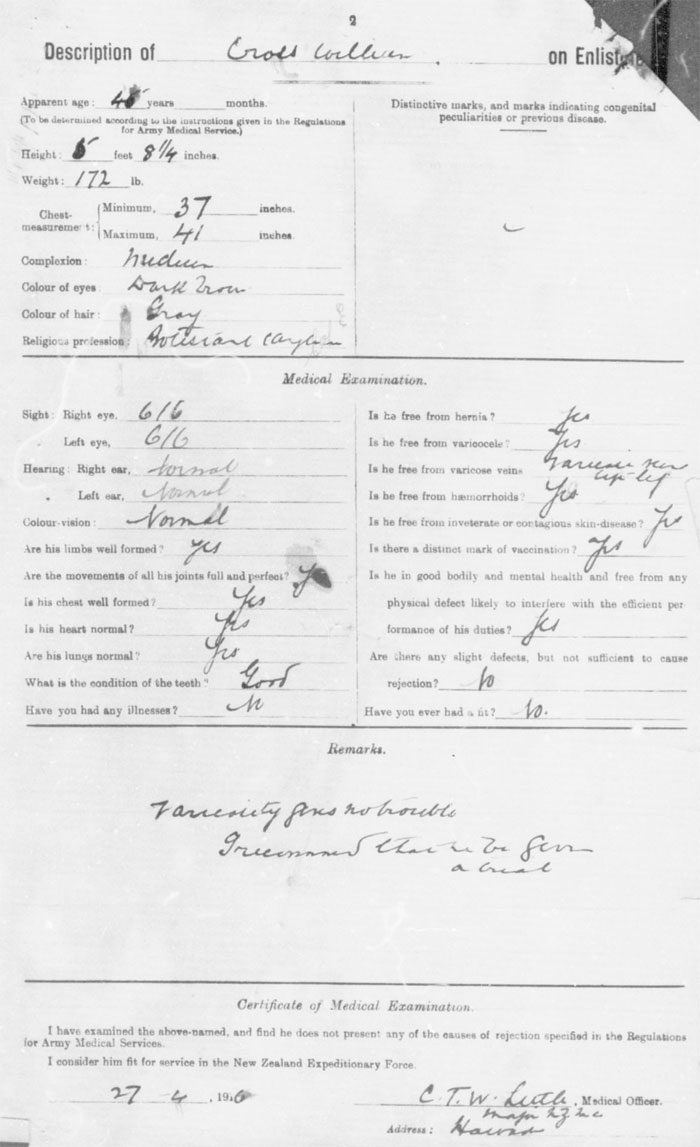 2
Description of Cross William on Enlistme
Apparent age: 45 years months.
(To be determined according to the instructions given in the Regulations
for Army Medical Service.)
Height: 5 feet 8 1/4 inches.
Weight: 172 lb.
Chest-measurement: Minimum, 37 inches.
Maximum, 41 inches.
Complexion: Medium
Colour of eyes: Dark Brown
Colour of hair: Gray
Religious profession: Protestant
Distinctive marks, and marks indicating congenital
peculiarities or previous disease.
Medical Examination.
Sight: Right eye, 6/6
Left eye, 6/6
Hearing: Right ear, Normal
Left ear, Normal
Colour-vision: Normal
Are his limbs well formed? Yes
Are the movements of all his joints full and perfect? Yes
Is his chest well formed? Yes
Is his heart normal? Yes
Are his lungs normal? Yes
What is the condition of the teeth? Good
Have you had any illnesses? No
Is he free from hernia? Yes
Is he free from varicocele? Yes
Is he free from varicose veins Varicose
left leg
Is he free from hæmorrhoids? Yes
Is he free from inveterate or contagious skin-disease? Yes
Is there a distinct mark of vaccination? Yes
Is he in good bodily and mental health and free from any
physical defect likely to interfere with the efficient per
formance of his duties? Yes
Are there any slight defects, but not sufficient to cause
rejection? No
Have you ever had a fit? No.
Remarks.
Varicosity gives no trouble
I recommend that he be given
a trial
Certificate of Medical Examination.
I have examined the above-named, and find he does not present any of the causes of rejection specified in the Regulations
for Army Medical Services.
I consider him fit for service in the New Zealand Expeditionary Force.
27 - 4 1916 C. T. W. Little, Medical Officer.
Major N.Z.M.C
Address: Hawera